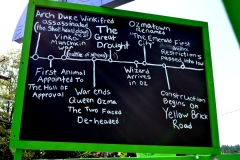 Arch Duke Winkifred
assassinated
(the Shot heard
Vinko-
Munchkin
War
(Battle of
The
Great
Drought
Ozmatown
Renamed
"The Emerald
City"
Animal
Restrictions
Passed into law
First Animal
Appointed to
The Hall of
Approval
War ends
Queen Ozma
The Two Faced
De-headed
Wizard
Arrives
in OZ
Construction
Begins on
Yellow Brick
Road